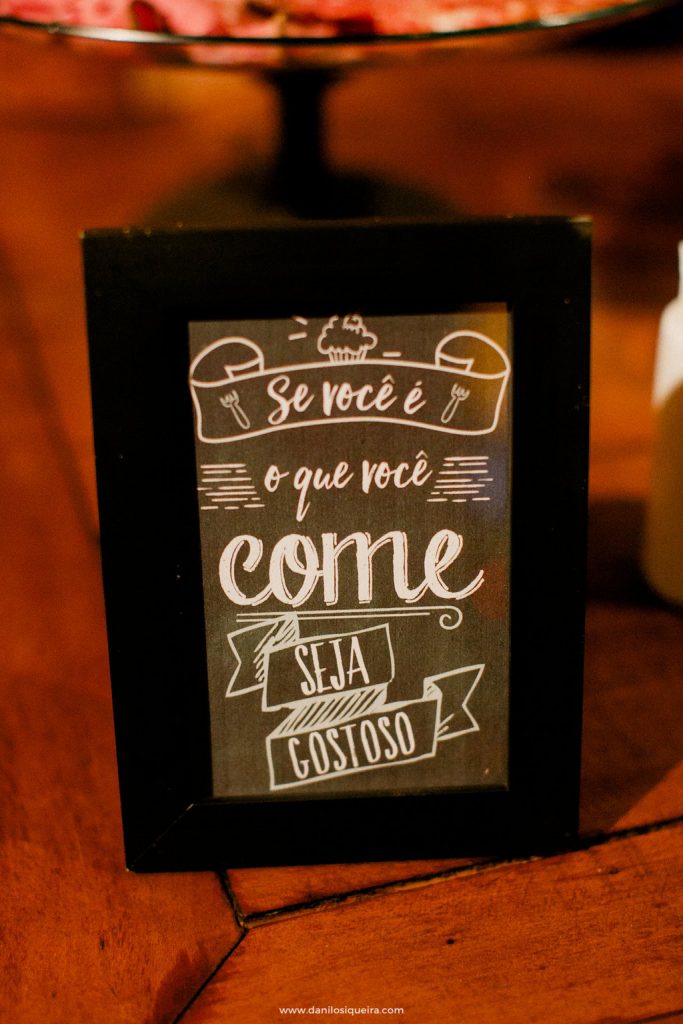 Se você é
o que você
come
SEJA
GOSTOSO
www.danilosiqueira.com